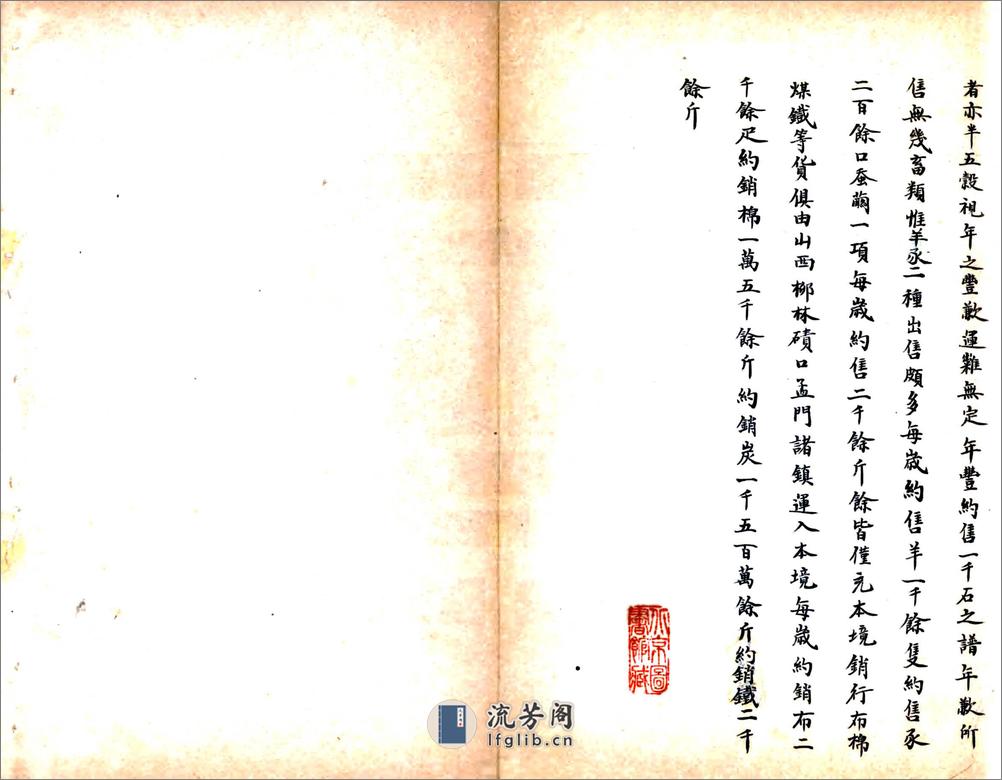 者亦半五穀視年之豐歉運難無定年豐約售一千石之譜年歉所
售無幾畜類惟羊豕二種出售頗多每歲約售羊一千餘隻約售豕
二百餘口蚕繭一項每歲約售二千餘斤餘皆僅充本境銷行布棉
煤鐵等貨俱由山西柳林磧口孟門諸鎮運入本境每歲約銷布二
千餘疋約銷棉一萬五千餘斤約銷炭一千五百萬餘斤約銷鐵二千
餘斤
北京圖
書館藏
流芳阁
lfglib.cn